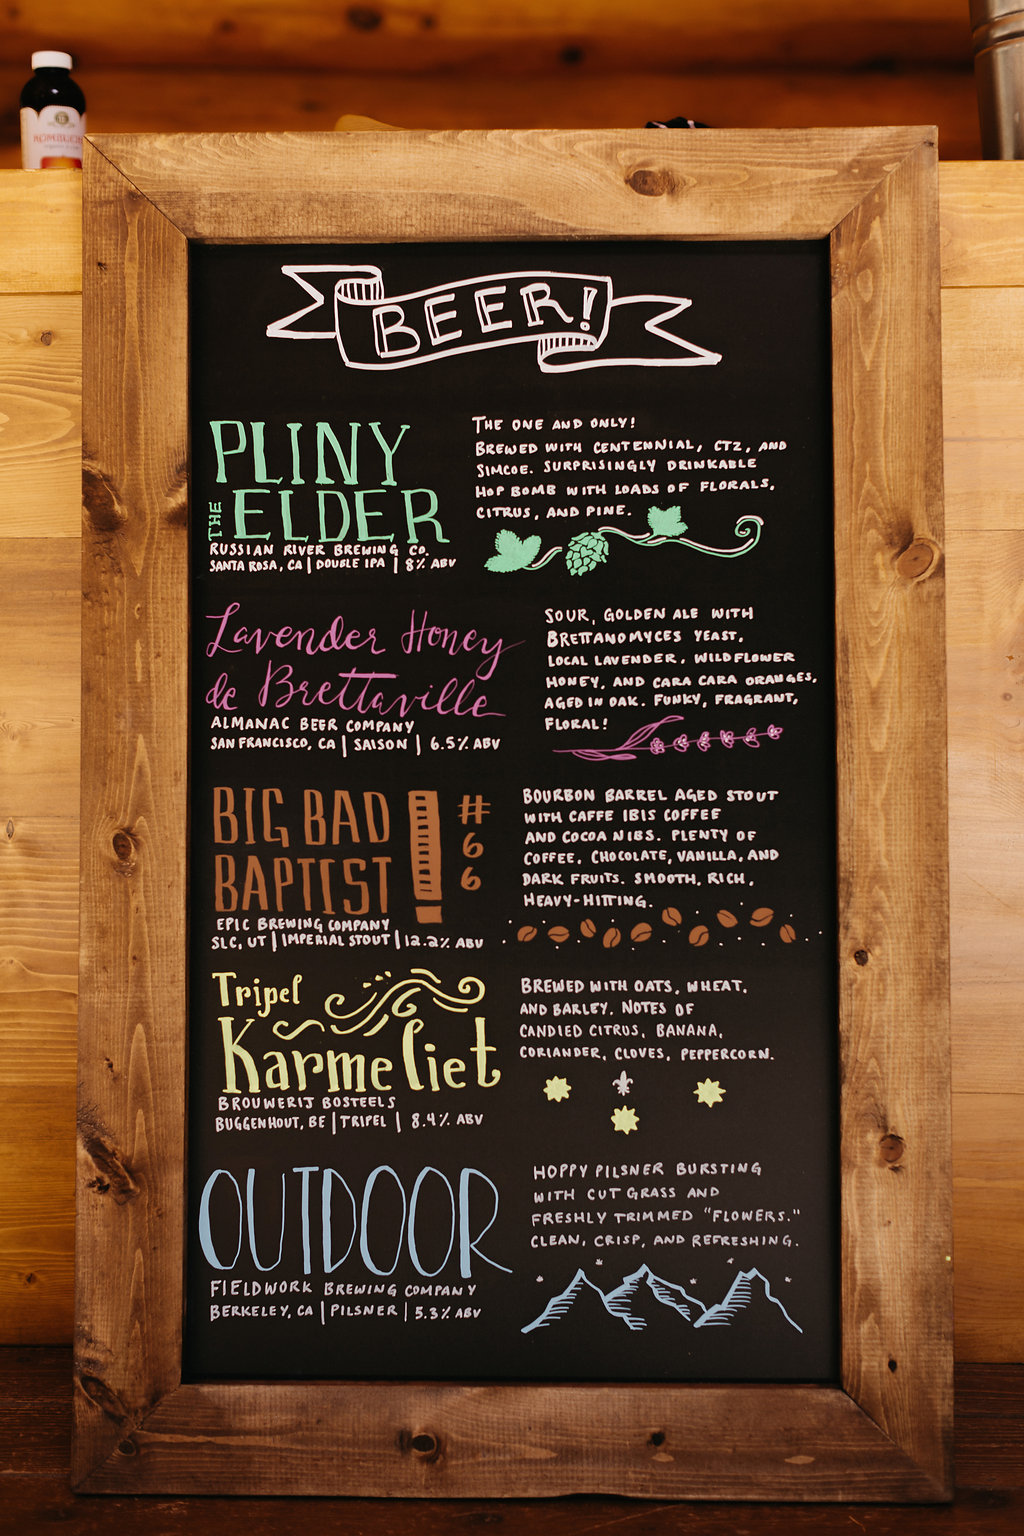 KOMBUCHA
BEER!
PLINY
THE ELDER
RUSSIAN RIVER BREWING CO.
SANTA ROSA, CA | DOUBLE IPA | 8% ABV
THE ONE AND ONLY!
BREWED WITH CENTENNIAL, CTZ, AND
SIMCOE. SURPRISINGLY DRINKABLE
HOP BOMB WITH LOADS OF FLORALS,
CITRUS, AND PINE.
Lavender Honey
de Brettaville
ALMANAC BEER COMPANY
SAN FRANCISCO, CA | SAISON | 6.5% ABV
SOUR, GOLDEN ALE WITH
BRETTANOMYCES YEAST,
LOCAL LAVENDER, WILDFLOWER
HONEY, AND CARA CARA ORANGES,
AGED IN OAK. FUNKY, FRAGRANT,
FLORAL!
BIG BAD
BAPTIST
! #66
EPIC BREWING COMPANY
SLC, UT | IMPERIAL STOUT | 12.2% ABV
BOURBON BARREL AGED STOUT
WITH CAFFE IBIS COFFEE
AND COCOA NIBS. PLENTY OF
COFFEE, CHOCOLATE, VANILLA, AND
DARK FRUITS. SMOOTH, RICH,
HEAVY-HITTING.
Tripel
Karmeliet
BROUWERIJ BOSTEELS
BUGGENHOUT, BE | TRIPEL | 8.4% ABV
BREWED WITH OATS, WHEAT,
AND BARLEY. NOTES OF
CANDIED CITRUS, BANANA,
CORIANDER, CLOVES, PEPPERCORN.
OUTDOOR
FIELDWORK BREWING COMPANY
BERKELEY, CA | PILSNER | 5.3% ABV
HOPPY PILSNER BURSTING
WITH CUT GRASS AND
FRESHLY TRIMMED "FLOWERS."
CLEAN, CRISP, AND REFRESHING.